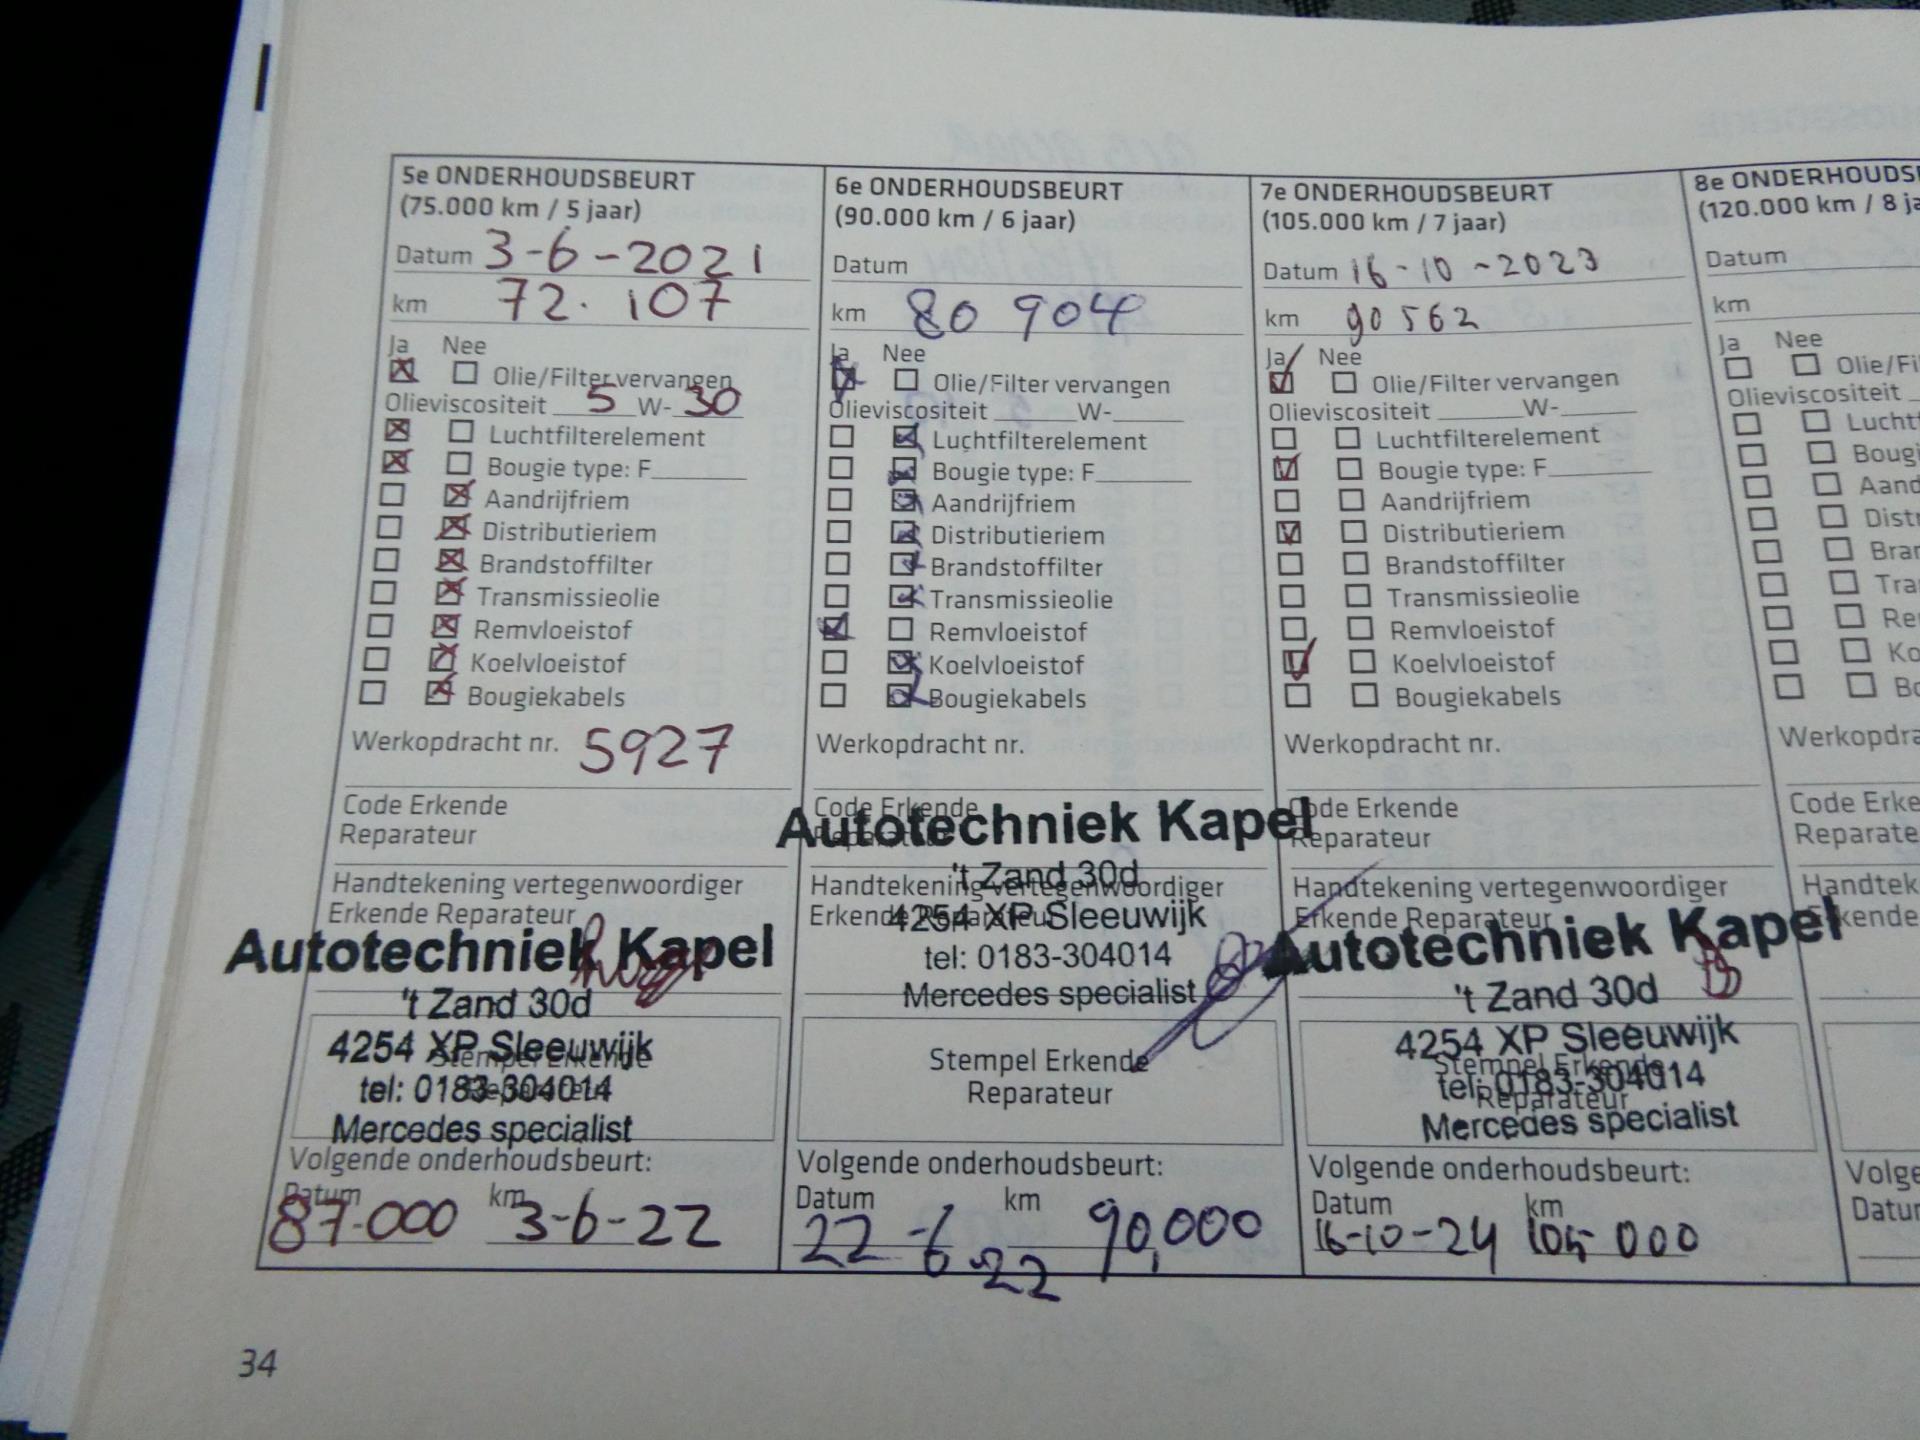 5e ONDERHOUDSBEURT
(75.000 km / 5 jaar)
Datum 3-6-2021
km 72.107
Ja Nee
Olie/Filter vervangen
Olieviscositeit 5 W- 30
Luchtfilterelement
Bougie type: F
Aandrijfriem
Distributieriem
Brandstoffilter
Transmissieolie
Remvloeistof
Koelvloeistof
Bougiekabels
Werkopdracht nr. 5927
Code Erkende
Reparateur
Handtekening vertegenwoordiger
Erkende Reparateur
Autotechniek Kapel
't Zand 30d
4254 XP Sleeuwijk
Stempel Erkende
tel: 0183-304014
Reparateur
Mercedes specialist
Volgende onderhoudsbeurt:
Datum km
87.000 3-6-22
6e ONDERHOUDSBEURT
(90.000 km / 6 jaar)
Datum
km 80 904
Ja Nee
Olie/Filter vervangen
Olieviscositeit W-
Luchtfilterelement
Bougie type: F
Aandrijfriem
Distributieriem
Brandstoffilter
Transmissieolie
Remvloeistof
Koelvloeistof
Bougiekabels
Werkopdracht nr.
Code Erkende
Autotechniek Kapel
Reparateur
't Zand 30d
Handtekening vertegenwoordiger
4254 XP Sleeuwijk
Erkende Reparateur
tel: 0183-304014
Mercedes specialist
Stempel Erkende
Reparateur
Volgende onderhoudsbeurt:
Datum km
22-6-22 90,000
7e ONDERHOUDSBEURT
(105.000 km / 7 jaar)
Datum 16-10-2023
km 90 562
Ja Nee
Olie/Filter vervangen
Olieviscositeit W-
Luchtfilterelement
Bougie type: F
Aandrijfriem
Distributieriem
Brandstoffilter
Transmissieolie
Remvloeistof
Koelvloeistof
Bougiekabels
Werkopdracht nr.
Code Erkende
Reparateur
Handtekening vertegenwoordiger
Erkende Reparateur
Autotechniek Kapel
't Zand 30d
4254 XP Sleeuwijk
Stempel Erkende
tel: 0183-304014
Reparateur
Mercedes specialist
Volgende onderhoudsbeurt:
Datum km
16-10-24 105 000
8e ONDERHOUDS
(120.000 km / 8 ja
Datum
km
Ja Nee
Olie/Fi
Olieviscositeit
Lucht
Bougi
Aand
Distr
Bran
Tra
Re
Ko
Bo
Werkopdra
Code Erke
Reparate
Handtek
Erkende
Volge
Datum
34